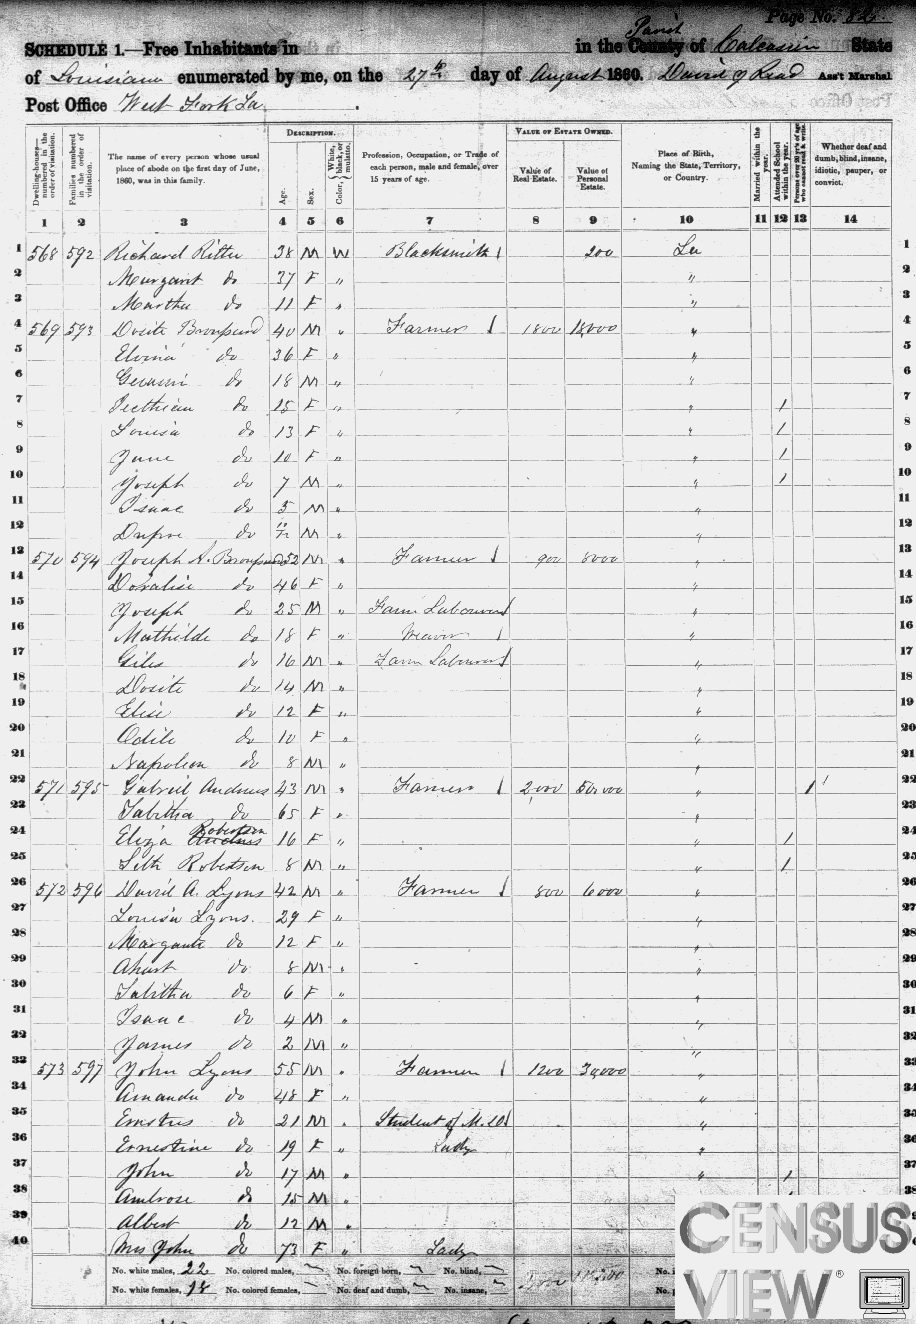 Page No.
SCHEDULE 1.—Free Inhabitants in in the County Parish of Calcasieu State
of Louisiana enumerated by me, on the 27th day of August 1860. David J Read Ass't Marshal
Post Office West Fork La.
DESCRIPTION. VALUE OF ESTATE OWNED.
Dwelling-houses—numbered in the order of visitation. Families numbered in the order of visitation. The name of every person whose usual place of abode on the first day of June, 1860, was in this family. Age. Sex. Color, White, black, or mulatto. Profession, Occupation, or Trade of each person, male and female, over 15 years of age. Value of Real Estate. Value of Personal Estate. Place of Birth, Naming the State, Territory, or Country. Married within the year. Attended School within the year. Persons over 20 y'rs of age who cannot read & write. Whether deaf and dumb, blind, insane, idiotic, pauper, or convict.
1 2 3 4 5 6 7 8 9 10 11 12 13 14
1 568 592 Richard Ritter 38 M W Blacksmith 200 La 1
2 Margaret do 37 F " " 2
3 Martha do 11 F " " 3
4 569 593 Dosite Broussard 40 M " Farmer 1800 18,000 " 4
5 Elvina do 36 F " " 5
6 do 18 M " " 6
7 do 15 F " " 1 7
8 Louisa do 13 F " " 1 8
9 June do 10 F " " 1 9
10 Joseph do 7 M " " 1 10
11 Isaac do 5 M " " 11
12 Dupre do M " " 12
13 570 594 Joseph A. Broussard 52 M " Farmer 900 8000 " 13
14 Doralise do 46 F " " 14
15 Joseph do 25 M " Farm Labourer " 15
16 Mathilde do 18 F " Weaver " 16
17 Giles do 16 M " Farm Labourer " 17
18 Dosite do 14 M " " 18
19 Elise do 12 F " " 19
20 Odile do 10 F " " 20
21 Napoleon do 8 M " " 21
22 571 595 Gabriel Andrus 43 M " Farmer 2,000 50,000 " 1 22
23 Tabitha do 65 F " " 23
24 Eliza Andrus Robertson 16 F " " 1 24
25 Seth Robertson 8 M " " 1 25
26 572 596 David A. Lyons 42 M " Farmer 800 6000 " 26
27 Louisa Lyons. 29 F " " 27
28 Margarite do 12 F " " 28
29 Ahart do 8 M " " 29
30 Tabitha do 6 F " " 30
31 Isaac do 4 M " " 31
32 James do 2 M " " 32
33 573 597 John Lyons 55 M " Farmer 1200 30,000 " 33
34 Amanda do 48 F " " 34
35 do 21 M " Student of M. D " 35
36 Ernestine do 19 F " Lady " 36
37 John do 17 M " " 1 37
38 Ambrose do 15 M " 38
39 Albert do 12 M "
40 Mrs John do 73 F " Lady
No. white males, 22 No. colored males, No. foreign born, No. blind,
No. white females, 18 No. colored females, No. deaf and dumb, No. insane,
CENSUS
VIEW®